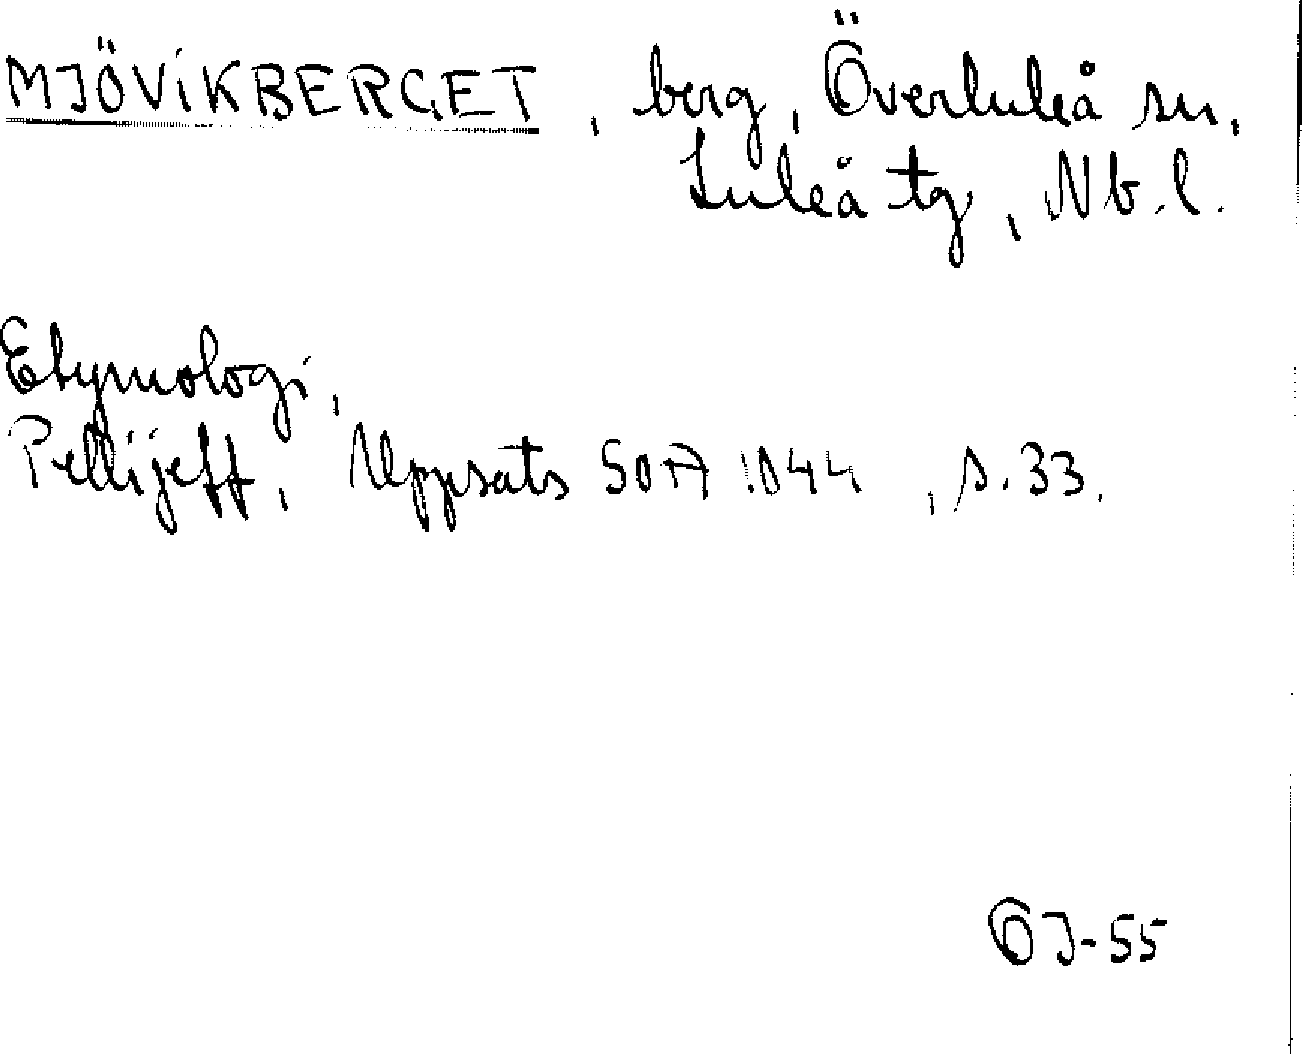 MJÖVIKBERGET, berg, Överluleå sn,
Luleå tg, Nb. l.
Etymologi,
Pellijeff, Uppsats SOFA 1044, s. 33.
OJ-55